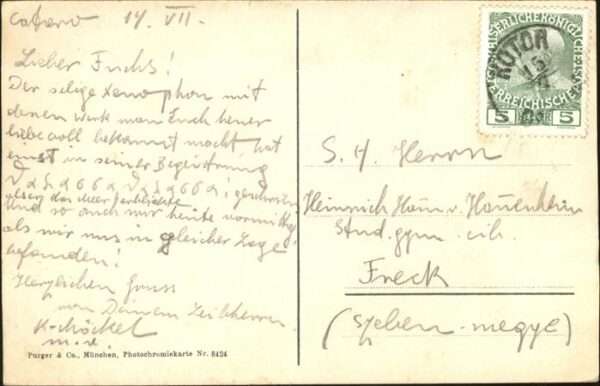 Cattaro 14. VII.
Lieber Fuchs!
Der selige Xenophon mit
denen Werk man Euch heuer
liebevoll bekannt macht hat
einst in seiner Begeisterung
als er das Meer
und so auch mir heute vormittag
als wir uns in gleicher Lage
befanden!
Herzlichen Gruss
von Deinem Leibherrn
m.p.
Purger & Co., München, Photochromiekarte Nr. 8424
KAISERLICHEKÖNIGLICHE
ÖSTERREICHISCHE
5 5
KOTOR
15
S. H. Herrn
Heinrich
Stud. gym.
Freck
(Szeben-megye)